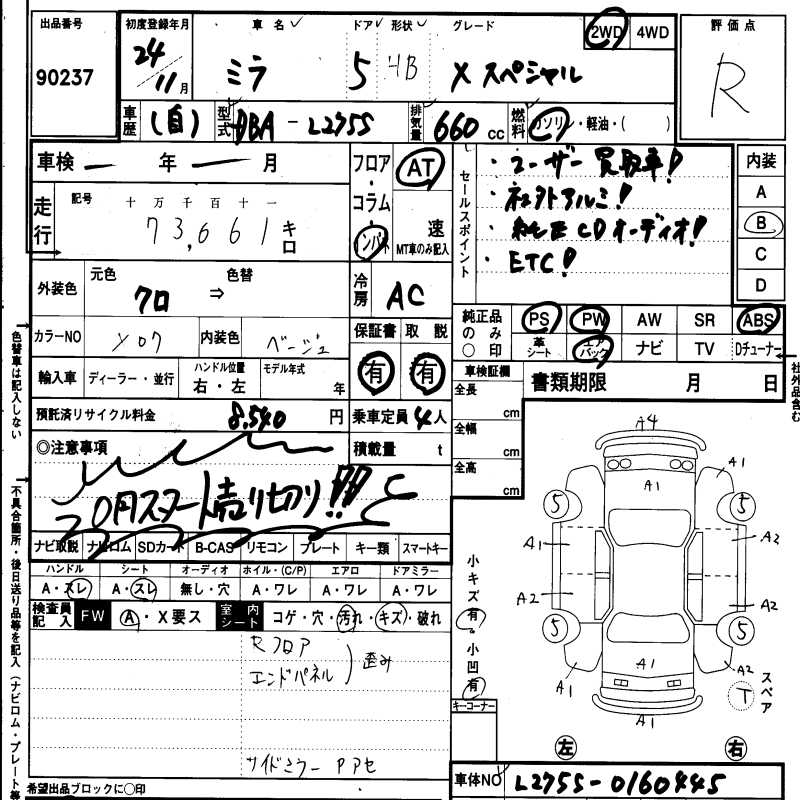 出品番号 初度登録年月 車名 ドア 形状 グレード 2WD 4WD 評価点
90237 24/11月 ミラ 5 HB X スペシャル R
車歴 (自) 型式 DBA-L275S 排気量 660cc 燃料 ガソリン・軽油・( )
車検 ー 年 ー 月
フロア・コラム・インパネ AT 速 MT車のみ記入
走行 記号 十万千百十一
73,661 キロ
セールスポイント
・ユーザー買取車!
・社外アルミ!
・純正CDオーディオ!
・ETC!
内装 A B C D
外装色 元色 クロ ⇒ 色替
冷房 AC
カラーNO X07 内装色 ベージュ
保証書 有 取説 有
純正品のみ〇印 PS PW AW SR ABS
革シート エアバック ナビ TV Dチューナー
輸入車 ディーラー・並行 ハンドル位置 右・左 モデル年式 年
車検証欄 書類期限 月 日
全長 cm
全幅 cm
全高 cm
預託済リサイクル料金 8,540 円 乗車定員 4人
積載量 t
◎注意事項
0円スタート売り切り!!!
ナビ取説 ナビロム SDカード B-CAS リモコン プレート キー類 スマートキー
ハンドル シート オーディオ ホイル・(C/P) エアロ ドアミラー
A・スレ A・スレ 無し・穴 A・ワレ A・ワレ A・ワレ
検査員記入 FW A・X要ス 室内シート コゲ・穴・汚れ・キズ・破れ
Rフロア
エンドパネル 歪み
サイドミラー Pアセ
希望出品ブロックに〇印
色替車は記入しない
不具合箇所・後日送り品等を記入(ナビロム・プレート等
社外品含む
小キズ有・小凹有
キーコーナー
A4
A1 A1
5 5
A1 A2
A2 A2
5 5
A1
A1 A2
A1
スペア T
左 右
車体NO L275S-0160445